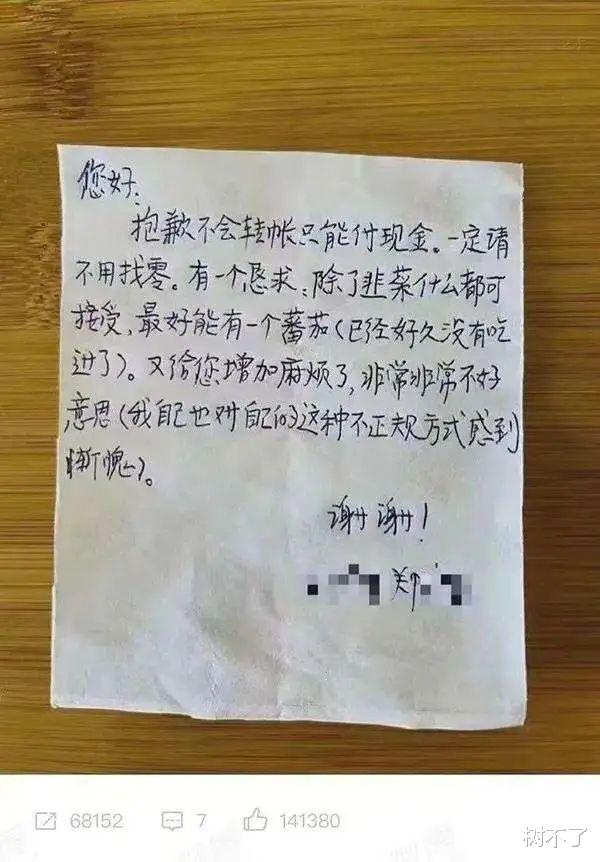 您好:
抱歉不会转帐只能付现金。一定请
不用找零。有一个恳求:除了韭菜什么都可
接受,最好能有一个蕃茄(已经好久没有吃
进了)。又给您增加麻烦了,非常非常不好
意思(我自己也对自己的这种不正规方式感到
惭愧)。
谢谢!
郑
68152 7 141380
树不了